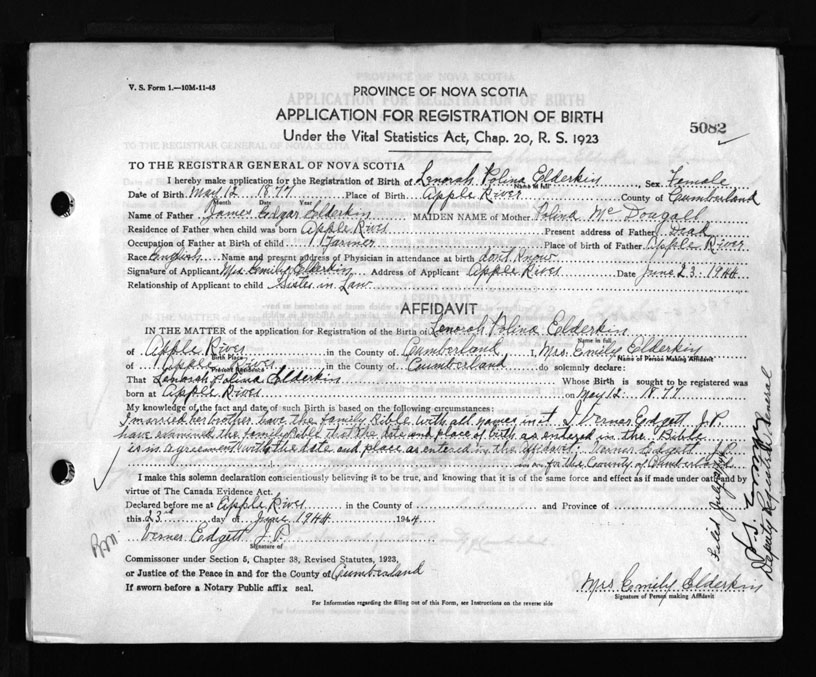 V. S. Form 1.—10M-11-43
PROVINCE OF NOVA SCOTIA
APPLICATION FOR REGISTRATION OF BIRTH
Under the Vital Statistics Act, Chap. 20, R. S. 1923
5082
TO THE REGISTRAR GENERAL OF NOVA SCOTIA
I hereby make application for the Registration of Birth of Lenorah Polina Elderkin, Sex Female
Name in full
Date of Birth May 12 1877 Place of Birth Apple River County of Cumberland
Month Date Year
Name of Father James Edgar Elderkin MAIDEN NAME of Mother Polina McDougall
Residence of Father when child was born Apple River Present address of Father Dead
Occupation of Father at Birth of child Farmer Place of birth of Father Apple River
Race English Name and present address of Physician in attendance at birth dont know
Signature of Applicant Mrs Emily Elderkin Address of Applicant Apple River Date June 23 1944
Relationship of Applicant to child Sister in Law
AFFIDAVIT
IN THE MATTER of the application for Registration of Birth of Lenorah Polina Elderkin
Name in full
of Apple River in the County of Cumberland I, Mrs. Emily Elderkin
Birth Place Name of Person Making Affidavit
of Apple River in the County of Cumberland do solemnly declare:
Present Residence
That Lenorah Polina Elderkin Whose Birth is sought to be registered was
born at Apple River on May 12 1877
My knowledge of the fact and date of such Birth is based on the following circumstances:
I married her brother have the family Bible with all names in it I Verner Edgett J.P.
have examined the family Bible that the date and place of birth as entered in the Bible
is in agreement with the date and place as entered in the affidavit. Verner Edgett J.P.
in or for the County of Cumberland
I make this solemn declaration conscientiously believing it to be true, and knowing that it is of the same force and effect as if made under oath and by
virtue of The Canada Evidence Act.
Declared before me at Apple River in the County of and Province of
this 23 day of June 1944 1944
Verner Edgett J.P.
Signature of
Commissoner under Section 5, Chapter 38, Revised Statutes, 1923,
or Justice of the Peace in and for the County of Cumberland
If sworn before a Notary Public affix seal.
Mrs Emily Elderkin
Signature of Person making Affidavit
For Information regarding the filling out of this Form, see Instructions on the reverse side
Filed July
Deputy Registrar General